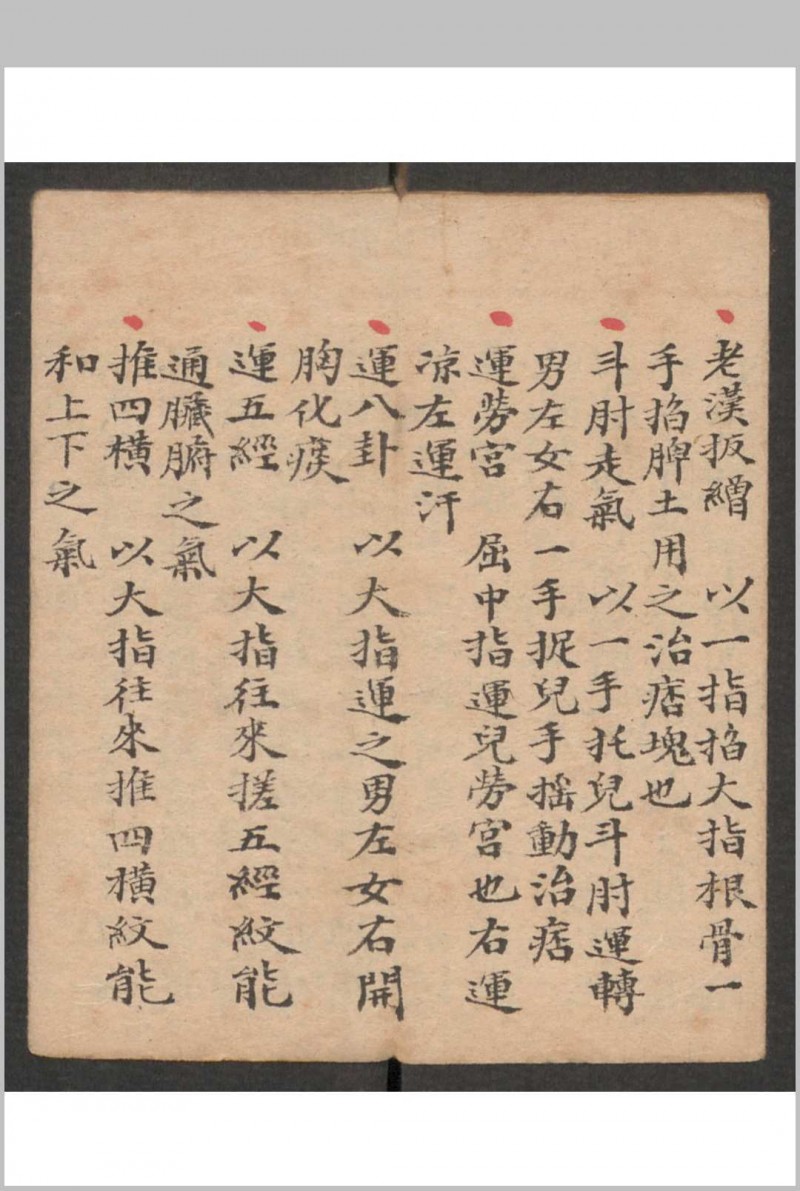 老漢扳繒 以一指掐大指根骨一
手掐脾土用之治痞塊也
斗肘走氣 以一手托兒斗肘運轉
男左女右一手捉兒手搖動治痞
運勞宮 屈中指運兒勞宮也右運
凉左運汗
運八卦 以大指運之男左女右開
胸化痰
運五經 以大指往來搓五經紋能
通臟腑之氣
推四橫 以大指往來推四橫紋能
和上下之氣